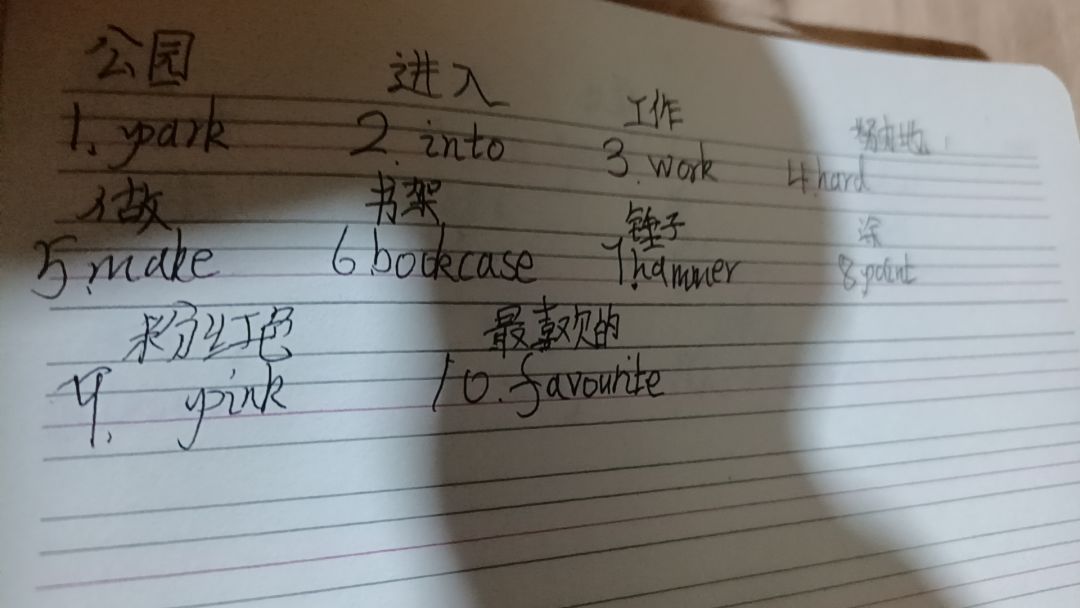 公园 进入 工作 努力地
1. park 2. into 3. work 4. hard
做 书架 锤子 涂
5. make 6. bookcase 7. hammer 8. paint
粉红色 最喜欢的
9. pink 10. favourite